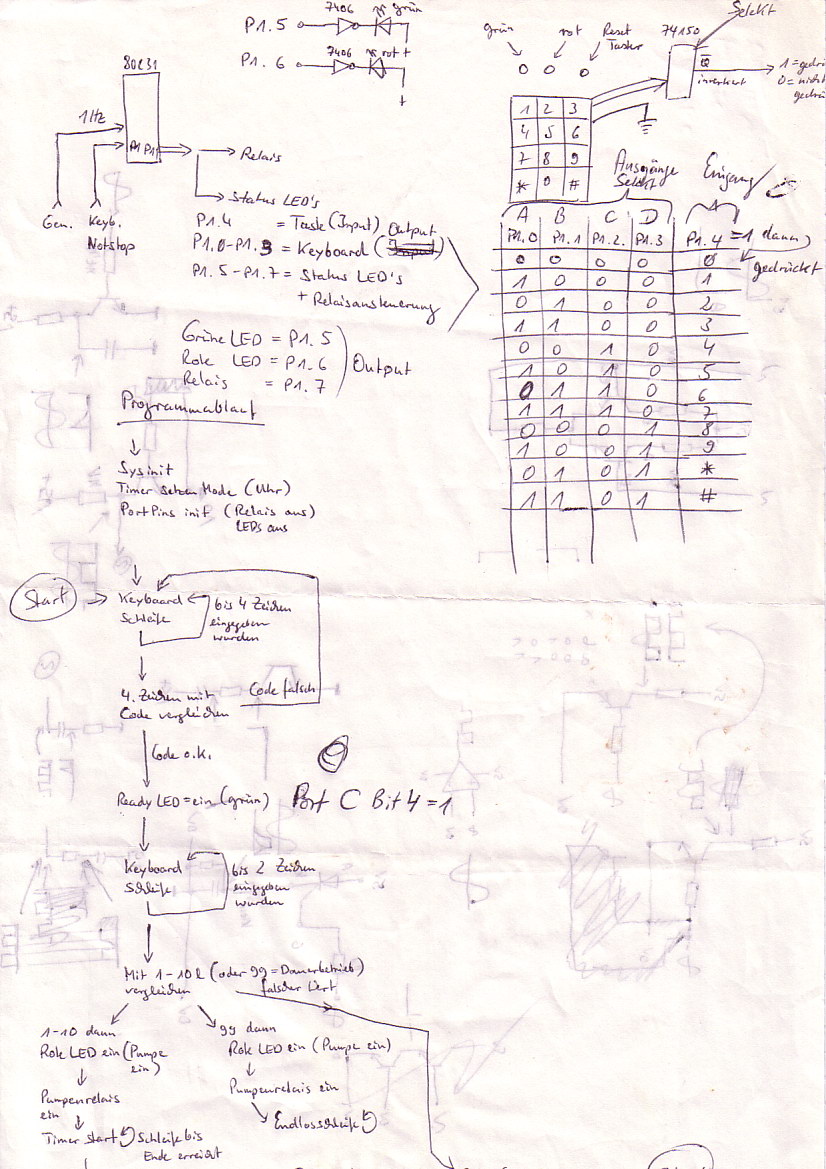 P1.5 7406 grün
P1.6 7406 rot +
+
grün rot Reset Taster 74150 Selekt
Q
invertiert
1 = gedrü
0 = nicht
gedrü
80C31
1Hz
P1 P1
Relais
Status LED's
Gen. Keyb.
Notstop
1 2 3
4 5 6
7 8 9
* 0 #
Ausgänge
Selekt
Eingang
P1.4 = Task (Input)
Output
P1.0-P1.3 = Keyboard (Input)
P1.5-P1.7 = Status LED's
+ Relaisansteuerung
A B C D
P1.0 P1.1 P1.2. P1.3 P1.4 = 1 dann
gedrückt
0 0 0 0 0
1 0 0 0 1
0 1 0 0 2
1 1 0 0 3
0 0 1 0 4
1 0 1 0 5
0 1 1 0 6
1 1 1 0 7
0 0 0 1 8
1 0 0 1 9
0 1 0 1 *
1 1 0 1 #
Grüne LED = P1.5
Rote LED = P1.6
Relais = P1.7
Output
Programmablauf
Sysinit
Timer setzen Mode (Uhr)
PortPins init (Relais aus)
LEDs aus
Start
Keyboard
Schleife
bis 4 Zeichen
eingegeben
wurden
4. Zeichen mit
Code vergleichen
Code falsch
Code o.k.
Ready LED = ein (grün)
Port C Bit 4 = 1
Keyboard
Schleife
bis 2 Zeichen
eingegeben
wurden
Mit 1-10l (oder 99 = Dauerbetrieb)
vergleichen
falscher Wert
1-10 dann
Rote LED ein (Pumpe
ein)
Pumpenrelais
ein
Timer start
Schleife bis
Ende erreicht
99 dann
Rote LED ein (Pumpe ein)
Pumpenrelais ein
Endlosschleife